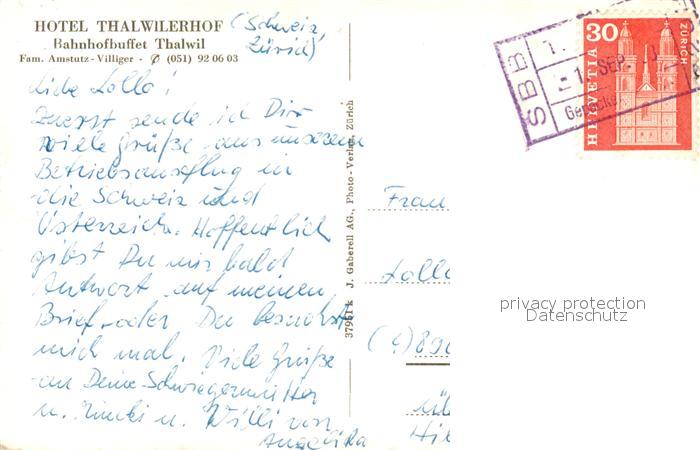 HOTEL THALWILERHOF
(Schweiz,
Zürich)
Bahnhofbuffet Thalwil
Fam. Amstutz-Villiger - ✆ (051) 92 06 03
Liebe Lolla!
Zuerst sende ich Dir
viele Grüße aus unserem
Betriebsausflug in
die Schweiz und
Österreich. Hoffentlich
gibst Du mir bald
Antwort auf meinen
Brief oder Du besuchst
mich mal. Viele Grüße
an Deine Schwiegermutter
u. u. Willi von
Angelika
37951k J. Gaberell AG., Photo-Verlag, Zürich
SBB
SEP.
30
HELVETIA
ZÜRICH
Frau
Loll
(
privacy protection
Datenschutz